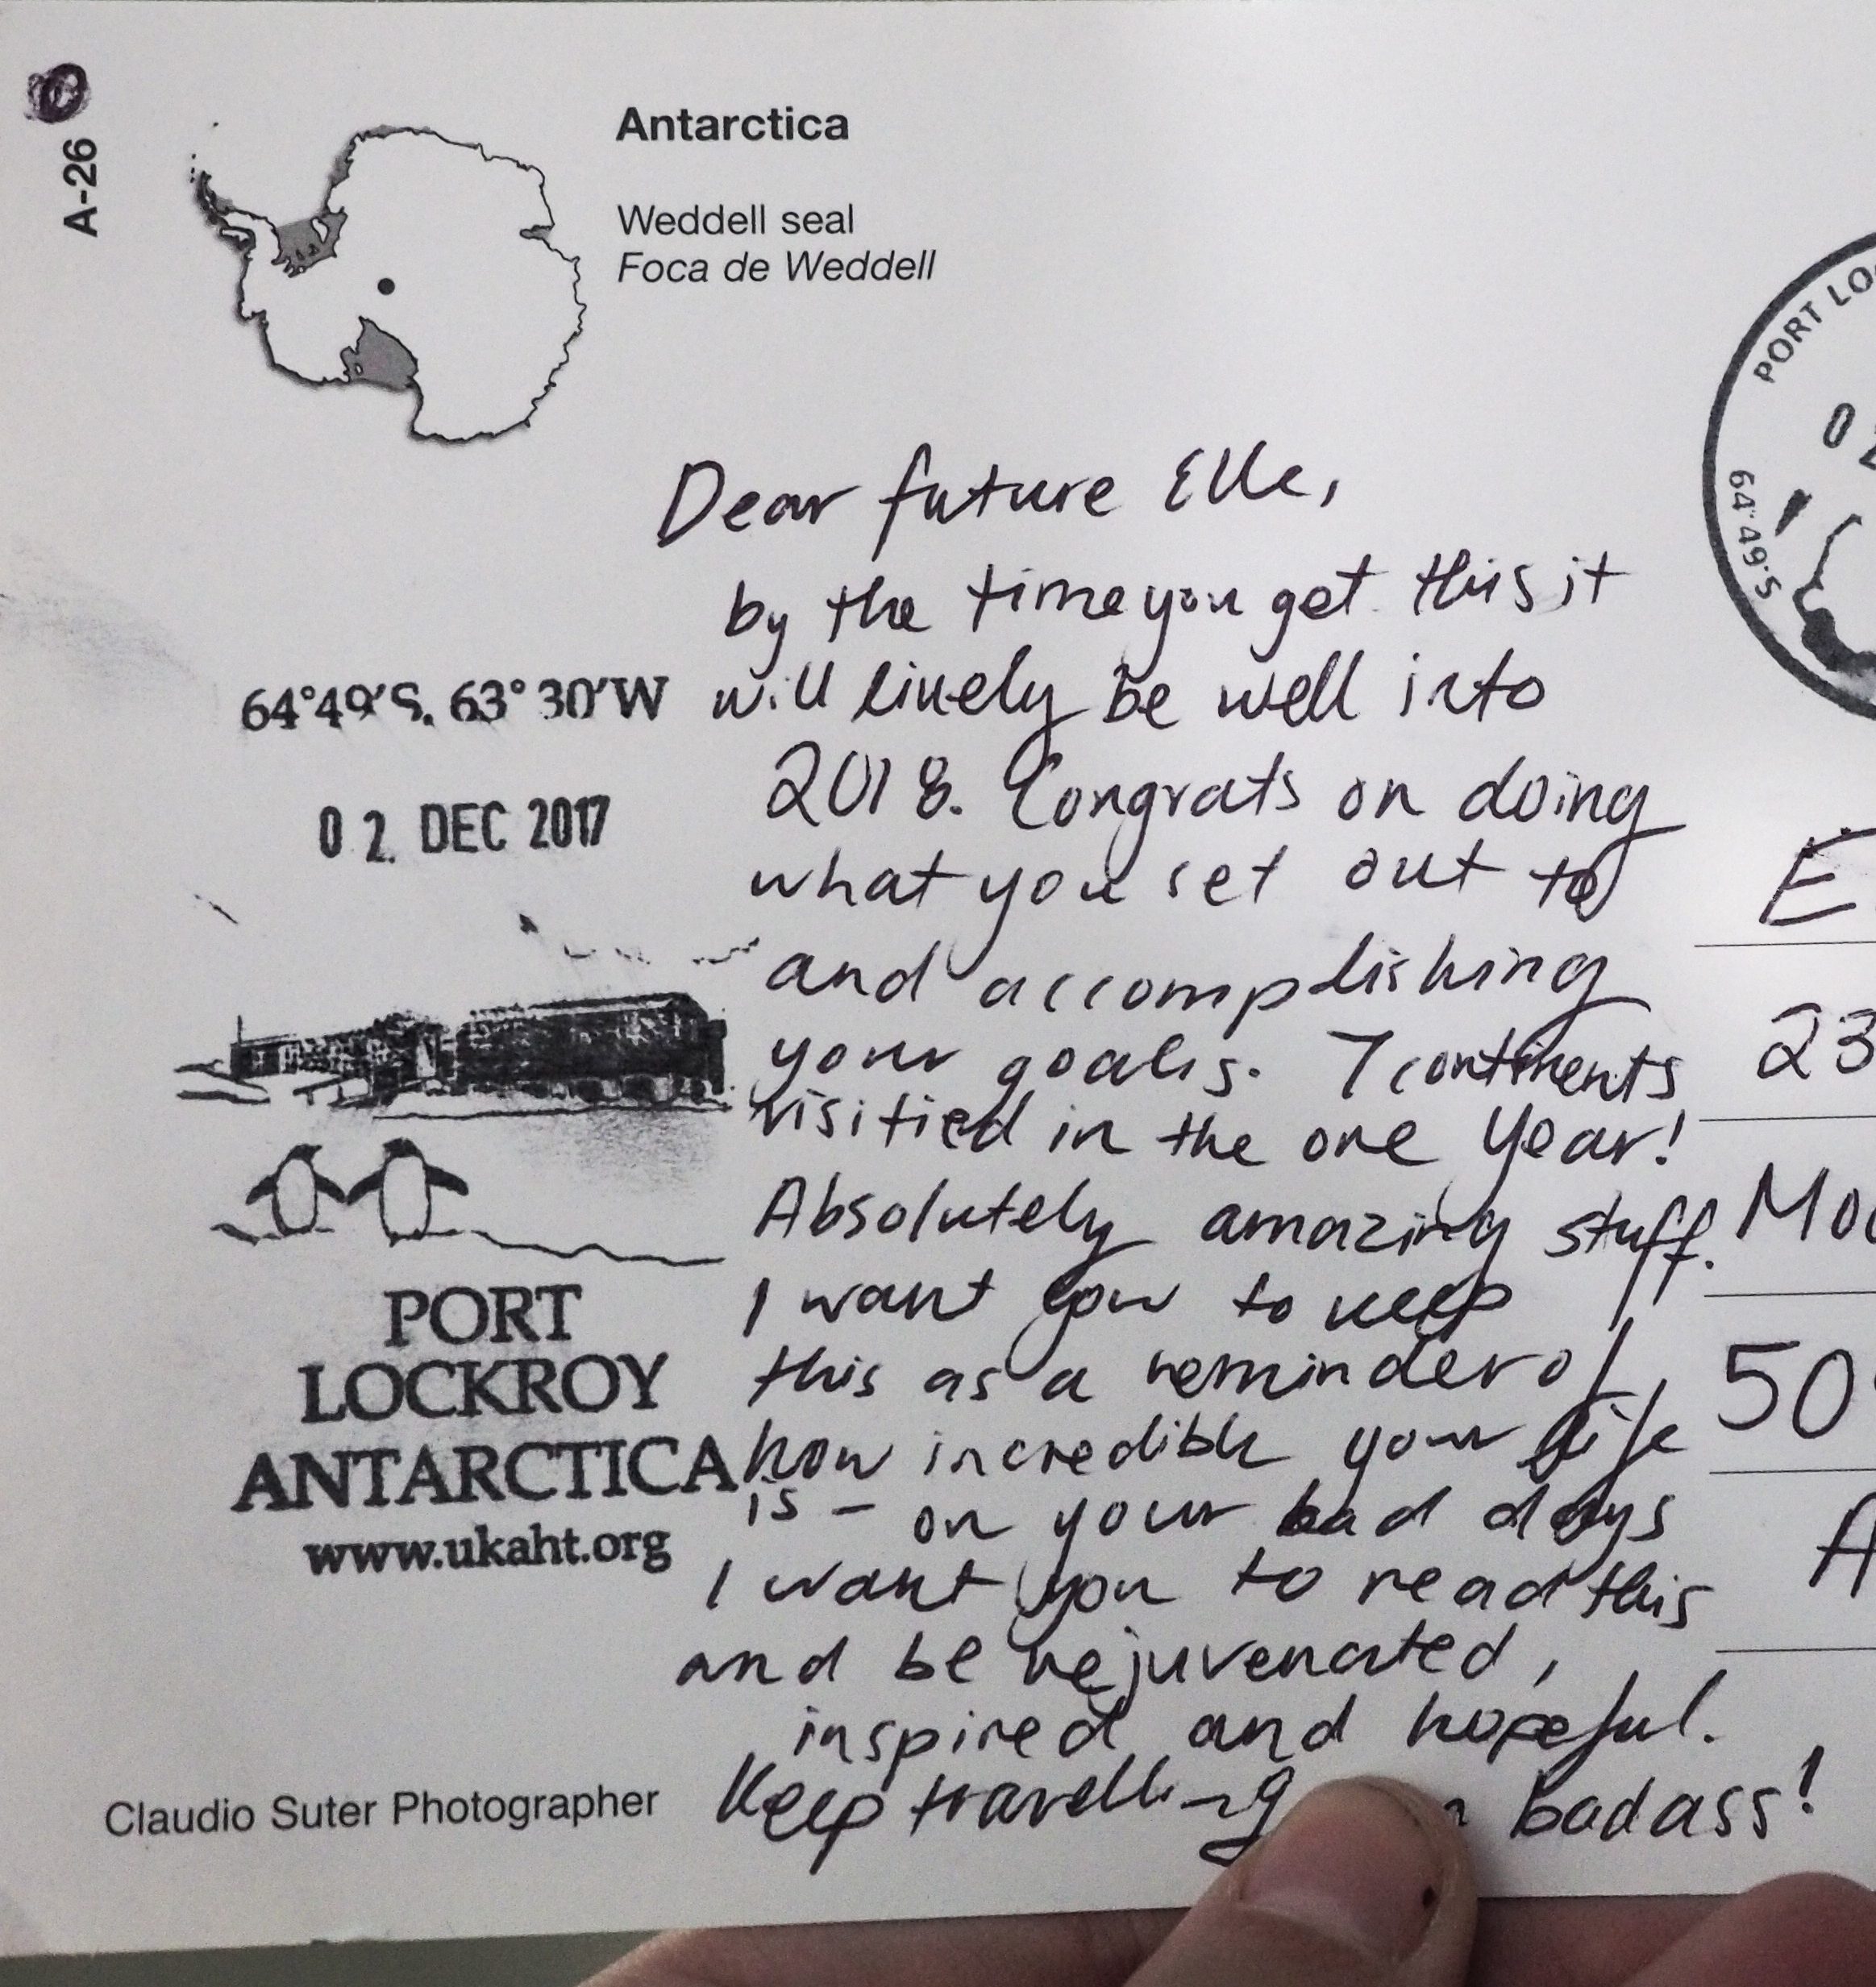 A-26
Antarctica
Weddell seal
Foca de Weddell
PORT LO
02
64°49'S
64°49'S, 63°30'W
02. DEC 2017
PORT
LOCKROY
ANTARCTICA
www.ukaht.org
Claudio Suter Photographer
Dear future Elle,
by the time you get this it
will likely be well into
2018. Congrats on doing
what you set out to
and accomplishing
your goals. 7 continents
visitied in the one year!
Absolutely amazing stuff.
I want you to keep
this as a reminder of
how incredible your life
is – on your bad days
I want you to read this
and be rejuvenated,
inspired and hopeful.
Keep travelling badass!
E
23
Mo
50
A